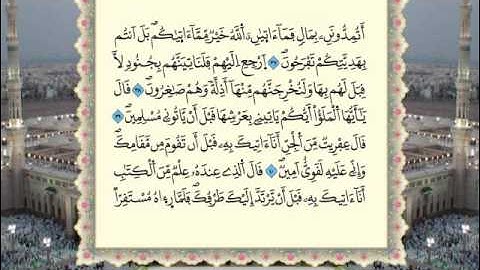 أَتُمِدُّونَنِۦ بِمَالٍ فَمَآ ءَاتٰينِۦَ اَ۬للَّهُ خَيْرٌ مِّمَّآ ءَاتٰيكُمۖ بَلَ اَنتُم
بِهَدِيَّتِكُمْ تَفْرَحُونَۖ اَ۪رْجِعِ اِلَيْهِمْ فَلَنَاتِيَنَّهُم بِجُنُودٍ لَّا
قِبَلَ لَهُم بِهَا وَلَنُخْرِجَنَّهُم مِّنْهَآ أَذِلَّةً وَهُمْ صَٰغِرُونَۖ قَالَ
يَٰٓأَيُّهَا اَ۬لْمَلَؤُاْ اَيُّكُمْ يَاتِينِے بِعَرْشِهَا قَبْلَ أَنْ يَّاتُونِے مُسْلِمِينَۖ
قَالَ عِفْرِيتٌ مِّنَ اَ۬لْجِنِّ أَنَآ ءَاتِيكَ بِهِۦ قَبْلَ أَن تَقُومَ مِن مَّقَامِكَۖ
وَإِنِّے عَلَيْهِ لَقَوِيٌّ اَمِينٌۖ قَالَ اَ۬لذِے عِندَهُۥ عِلْمٌ مِّنَ اَ۬لْكِتَٰبِ
أَنَآ ءَاتِيكَ بِهِۦ قَبْلَ أَنْ يَّرْتَدَّ إِلَيْكَ طَرْفُكَۖ فَلَمَّا ر۪ء۪اهُ مُسْتَقِرّاً